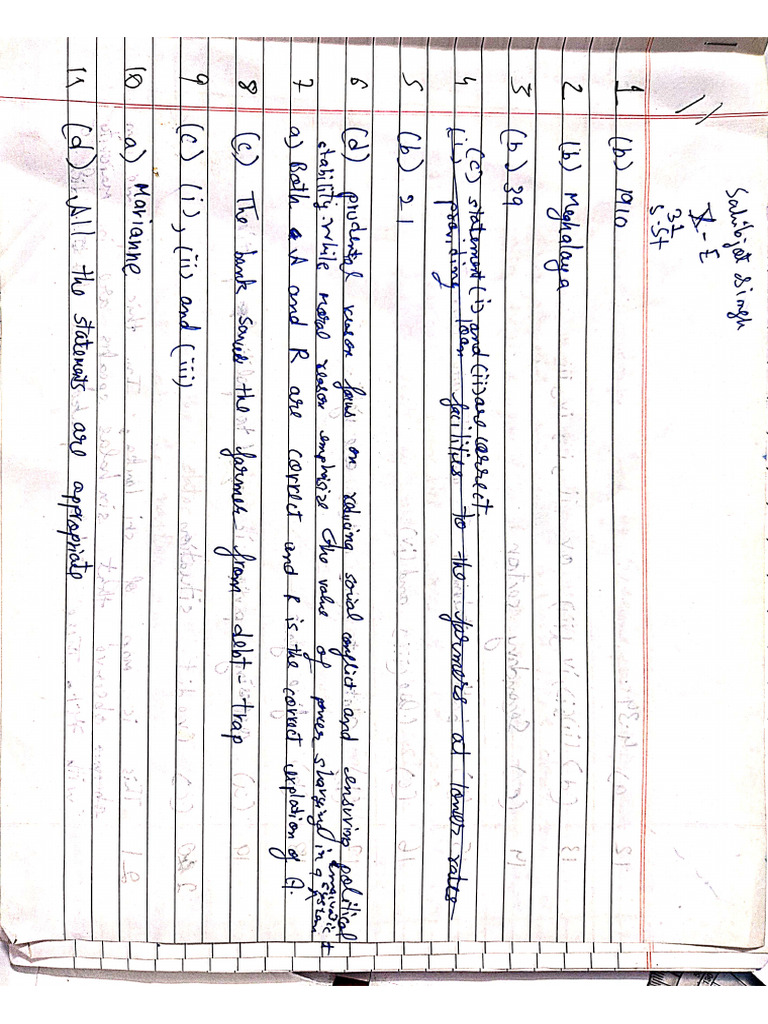 Sahibjot Singh
X-E
37
S.St
1 (b) 1910
2 (b) Meghalaya
3 (b) 39
(c) statement (i) and (ii) are correct.
4 (ii) providing loan facilities to the farmers at lower rates
5 (b) 21
6 (d) prudental reason focus on reducing social conflict and ensuring political
stability while moral reason emphisize the value of power sharing in a system
7 a) Both A and R are correct and R is the correct explation of A.
8 (c) The bank saves the farmer from debt-trap
9 (c) (i), (ii) and (iii)
10 a) Marianne
11 (d) All the statements are appropriate